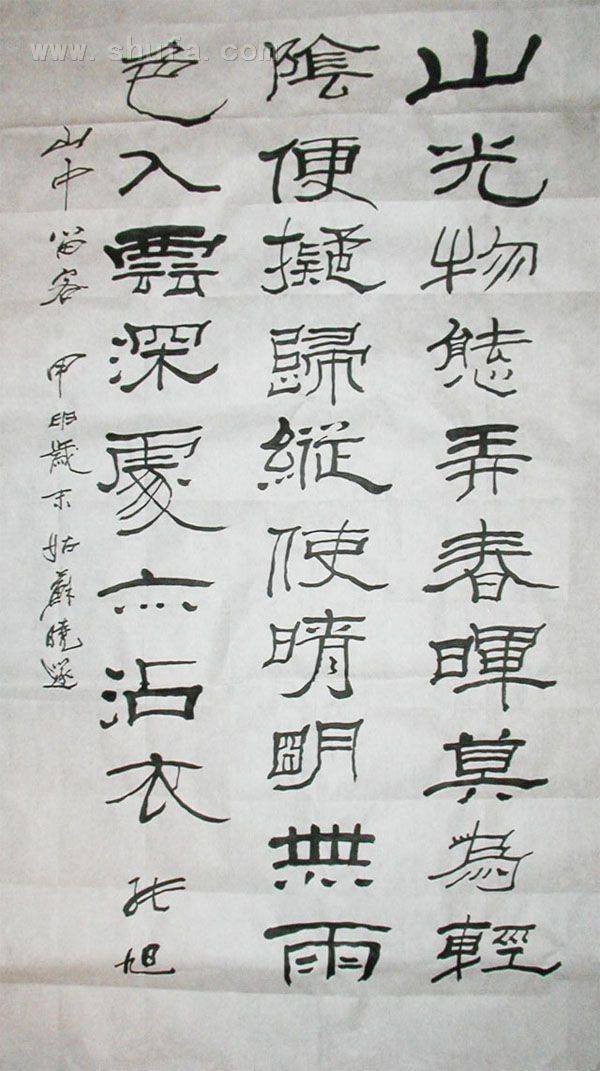 www.shufa.com
山光物態弄春暉莫為輕
陰便擬歸縱使晴眀無雨
色入雲深處亦沾衣 張旭
山中留客 甲歲末姑蘇曉